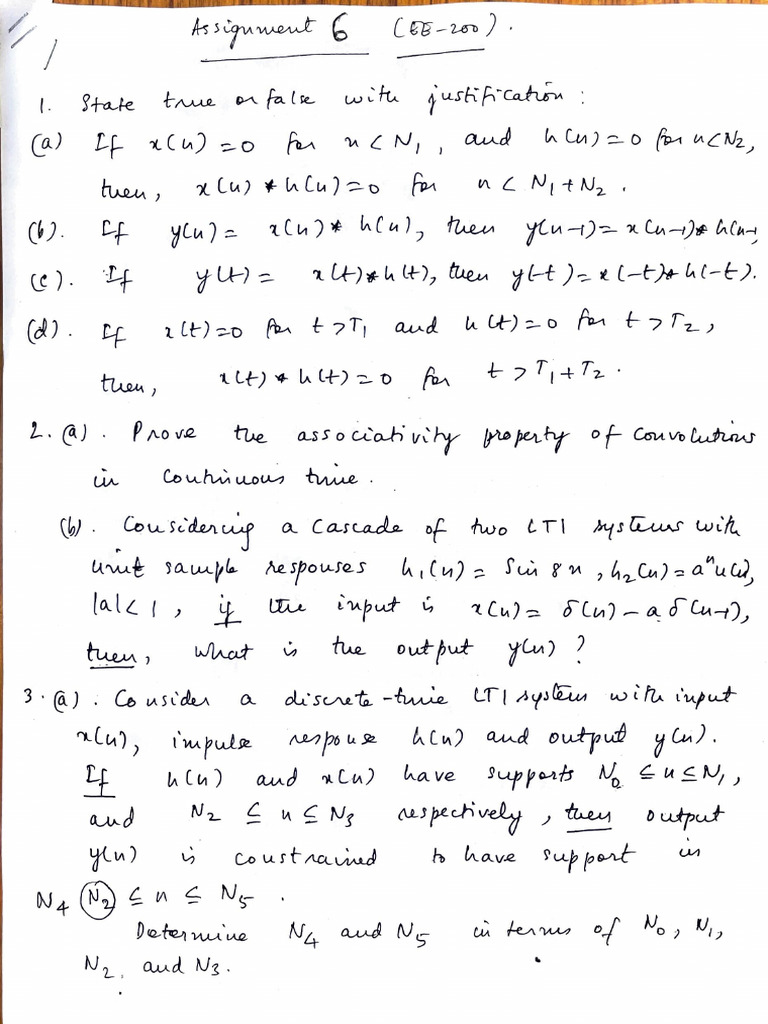 Assignment 6 (EE-200).
1. State true or false with justification:
(a) If x(n)=0 for n<N₁, and h(n)=0 for n<N₂,
then, x(n)*h(n)=0 for n<N₁+N₂.
(b). If y(n)= x(n)*h(n), then y(n-1)=x(n-1)*h(n-1)
(c). If y(t)= x(t)*h(t), then y(-t)=x(-t)*h(-t).
(d). If x(t)=0 for t>T₁ and h(t)=0 for t>T₂,
then, x(t)*h(t)=0 for t>T₁+T₂.
2. (a). Prove the associativity property of convolutions
in continuous time.
(b). Considering a cascade of two LTI systems with
unit sample responses h₁(n)= Sin 8n, h₂(n)=aⁿu(n),
|a|<1, if the input is x(n)= δ(n)-aδ(n-1),
then, what is the output y(n)?
3. (a). Consider a discrete-time LTI system with input
x(n), impulse response h(n) and output y(n).
If h(n) and x(n) have supports N₀≤n≤N₁,
and N₂≤n≤N₃ respectively, then output
y(n) is constrained to have support in
N₄ N₂ ≤n≤ N₅.
Determine N₄ and N₅ in terms of N₀, N₁,
N₂, and N₃.